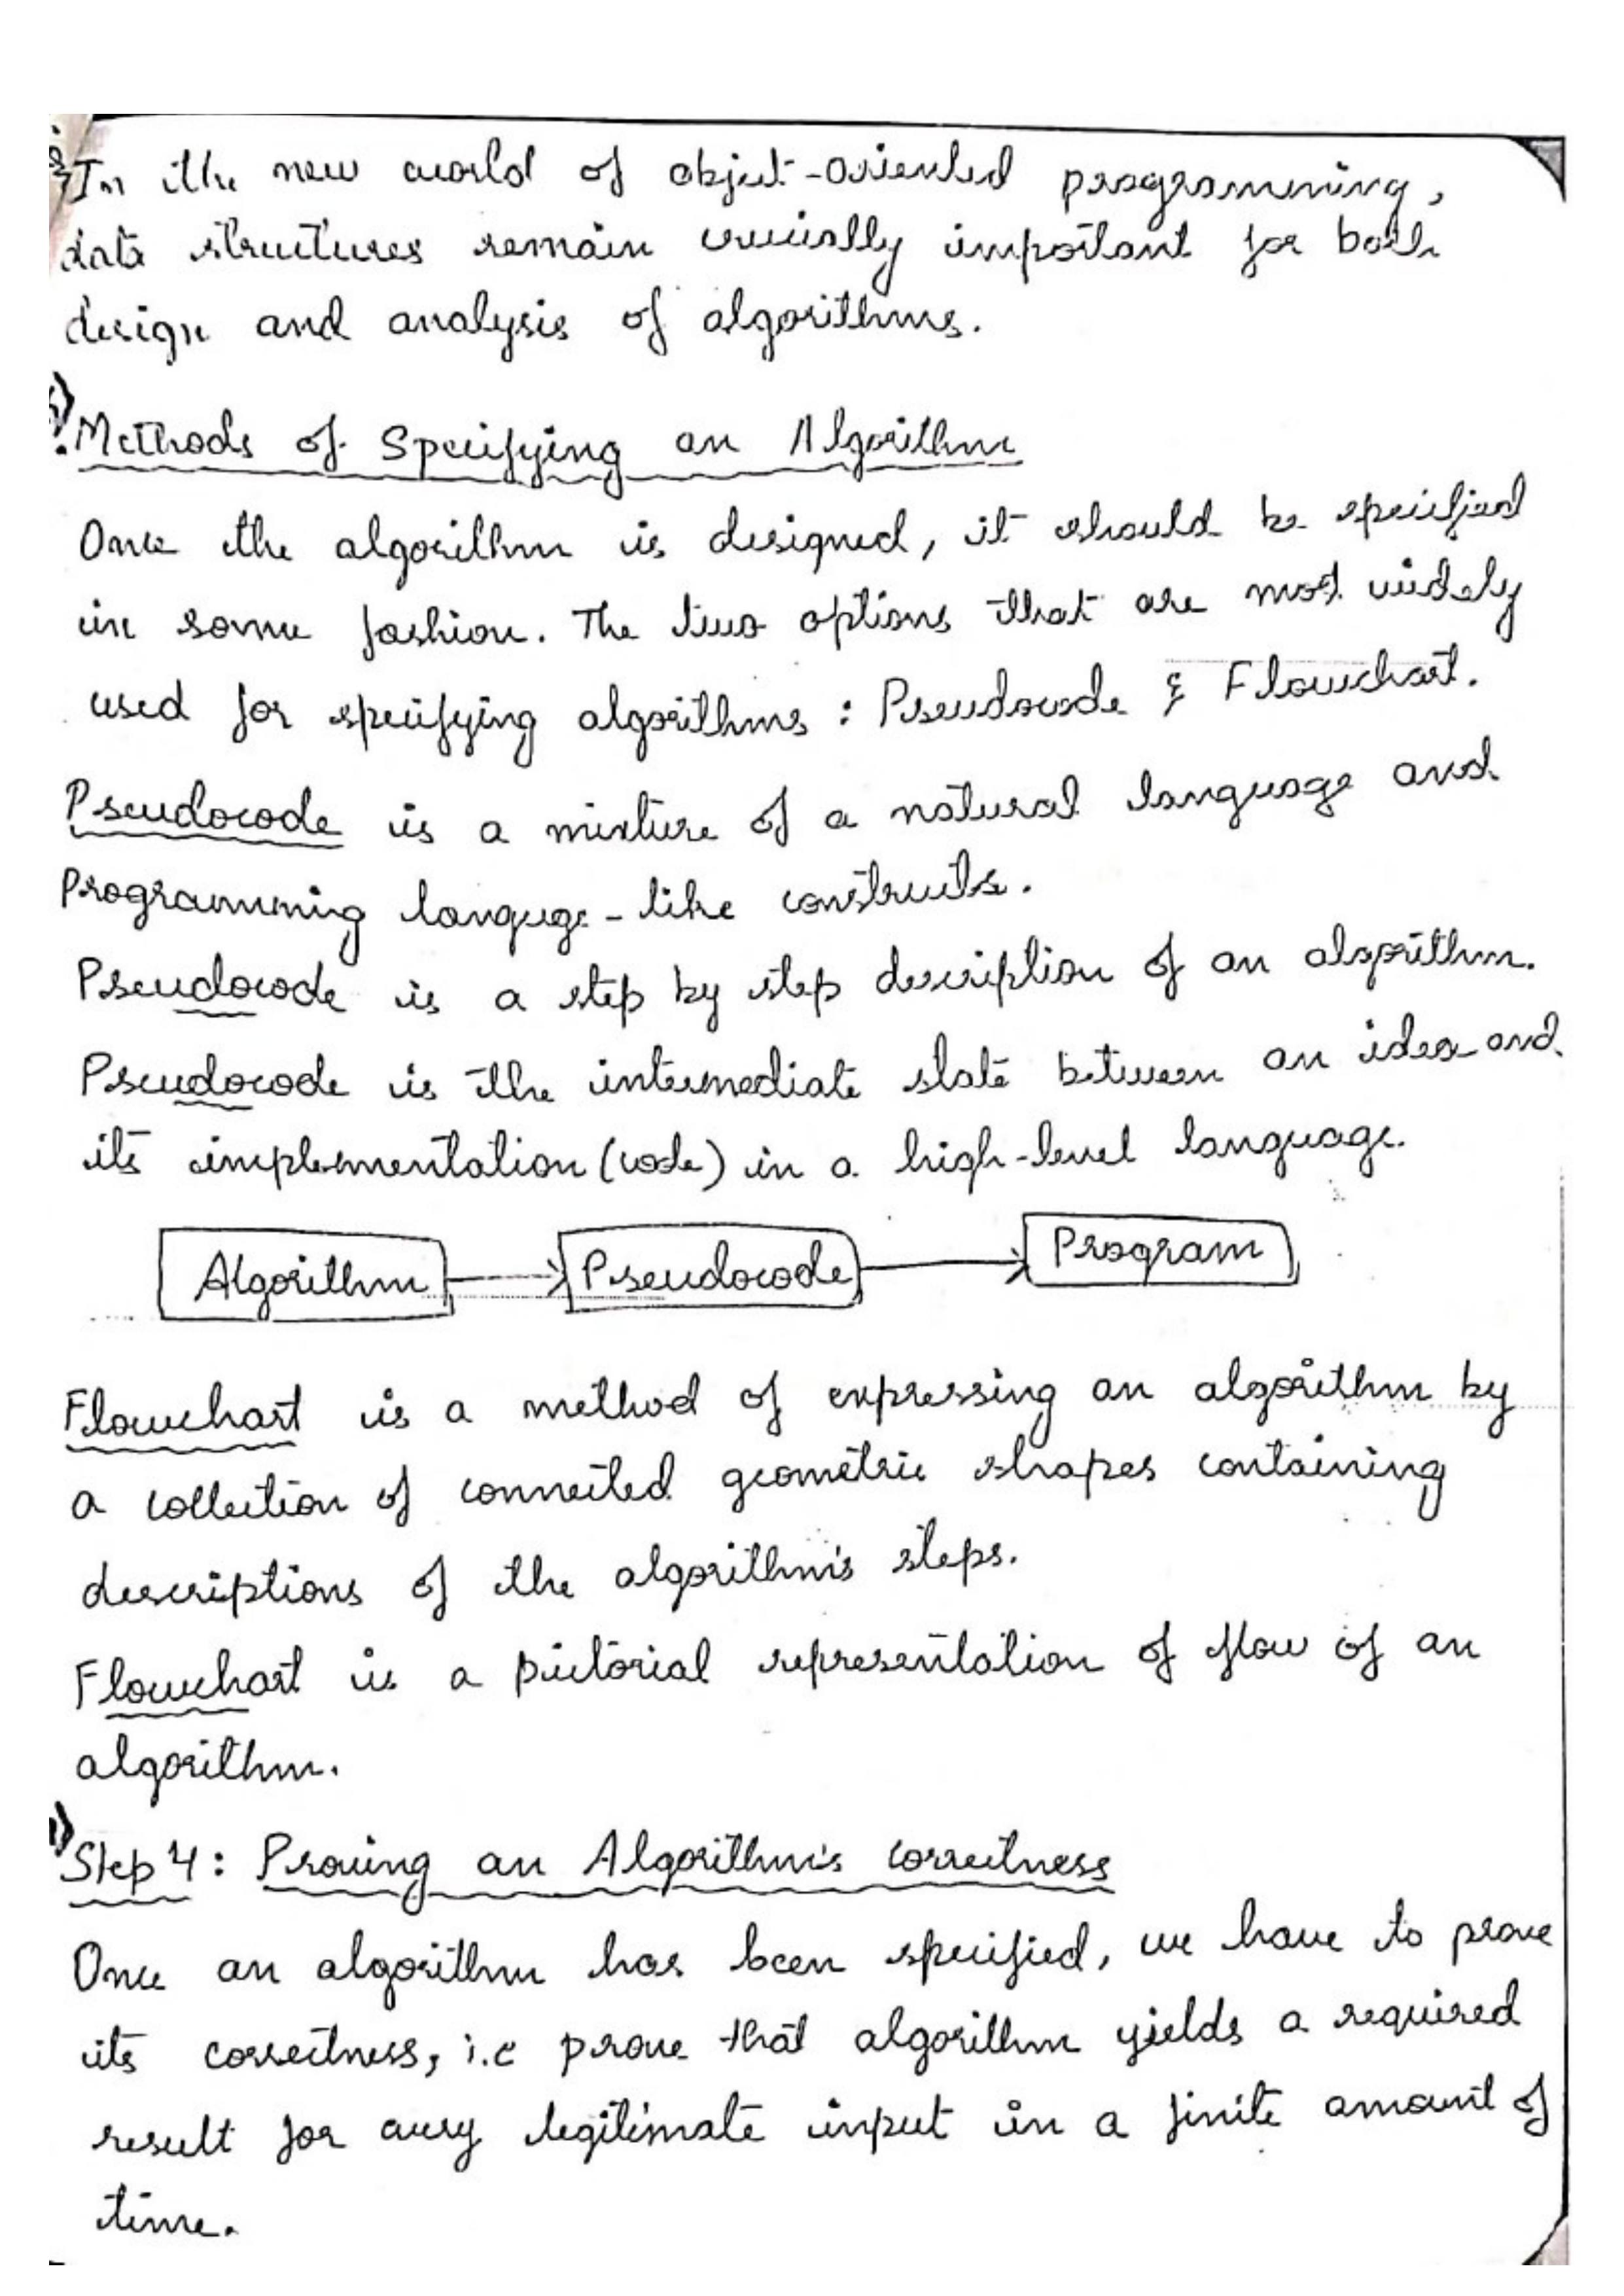 In the new world of object-oriented programming,
data structures remain crucially important for both
design and analysis of algorithms.
Methods of Specifying an Algorithm
Once the algorithm is designed, it should be specified
in some fashion. The two options that are most widely
used for specifying algorithms : Pseudocode & Flowchart.
Pseudocode is a mixture of a natural language and
Programming languge-like constructs.
Pseudocode is a step by step description of an algorithm.
Pseudocode is the intermediate state between an idea and
its implementation (code) in a high-level language.
Algorithm Pseudocode Program
Flowchart is a method of expressing an algorithm by
a collection of connected geometric shapes containing
descriptions of the algorithm's steps.
Flowchart is a pictorial representation of flow of an
algorithm.
Step 4: Proving an Algorithm's correctness
Once an algorithm has been specified, we have to prove
its correctness, i.e prove that algorithm yields a required
result for every legitimate input in a finite amount of
time.